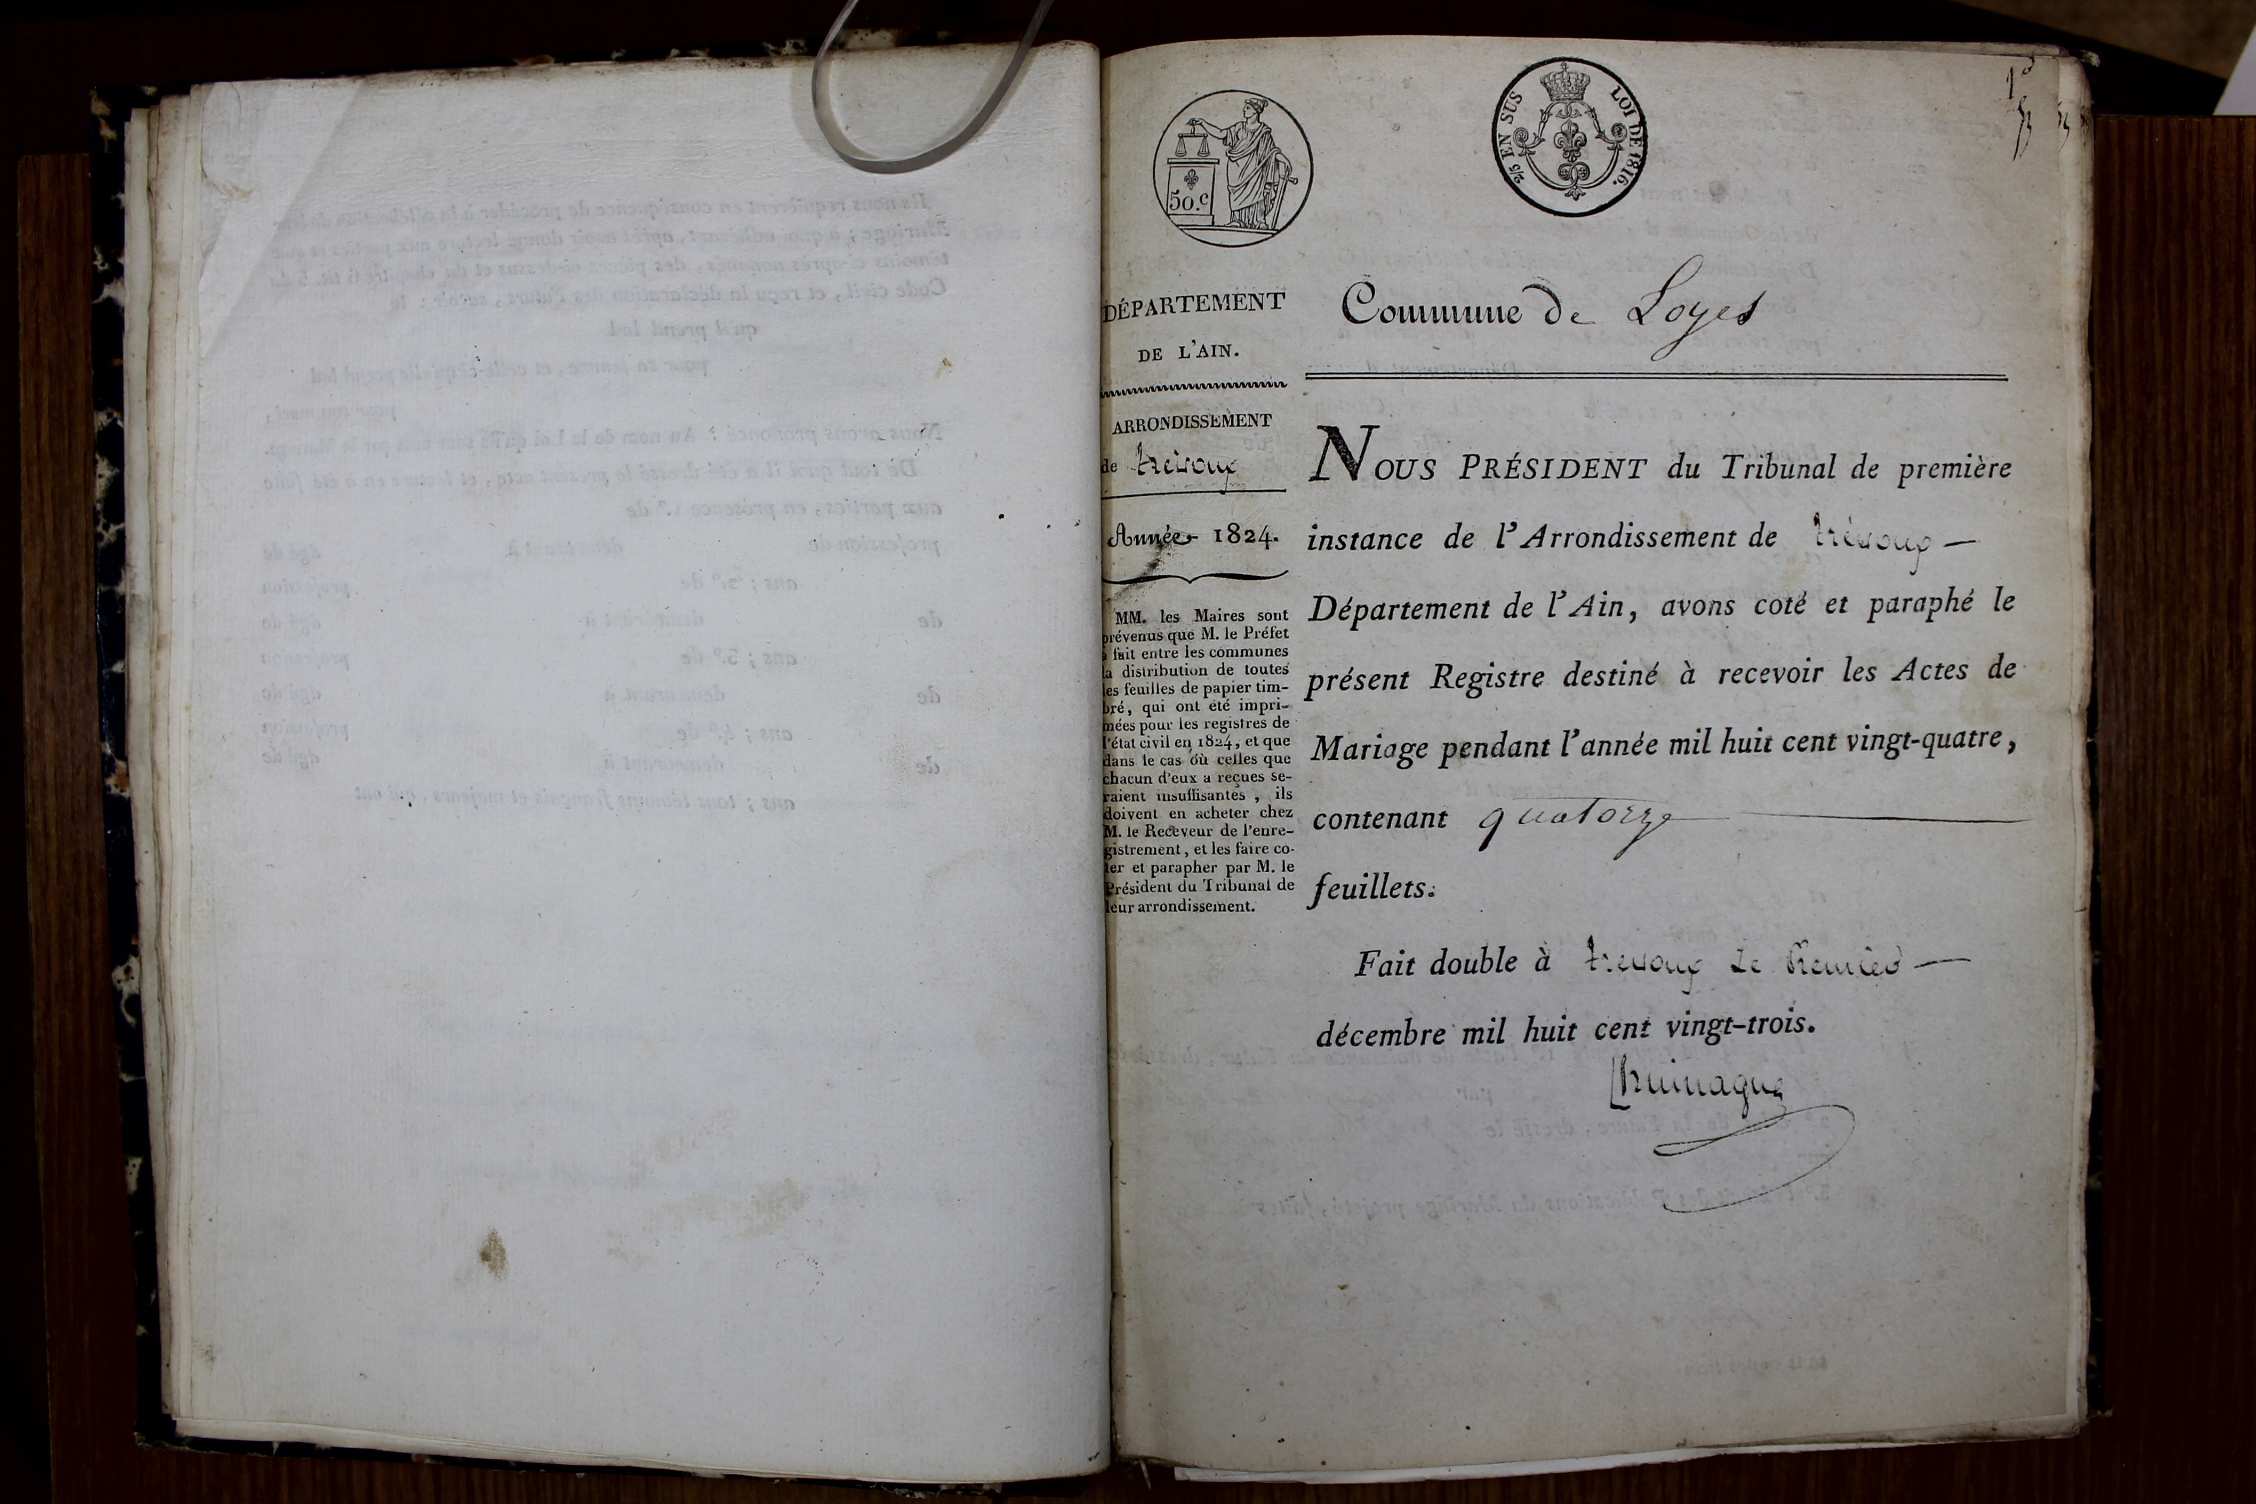 50.c
2/5 EN SUS LOI DE 1816.
1er
DÉPARTEMENT
DE L'AIN.
ARRONDISSEMENT
de trevoux
Année 1824.
MM. les Maires sont
prévenus que M. le Préfet
a fait entre les communes
la distribution de toutes
les feuilles de papier tim-
bré, qui ont été impri-
mées pour les registres de
l'état civil en 1824, et que
dans le cas où celles que
chacun d'eux a reçues se-
raient insuffisantes, ils
doivent en acheter chez
M. le Receveur de l'enre-
gistrement, et les faire co-
ter et parapher par M. le
Président du Tribunal de
leur arrondissement.
Commune de Loyes
NOUS PRÉSIDENT du Tribunal de première
instance de l'Arrondissement de trévoux —
Département de l'Ain, avons coté et paraphé le
présent Registre destiné à recevoir les Actes de
Mariage pendant l'année mil huit cent vingt-quatre,
contenant quatorze
feuillets.
Fait double à trevoux Le Premier —
décembre mil huit cent vingt-trois.